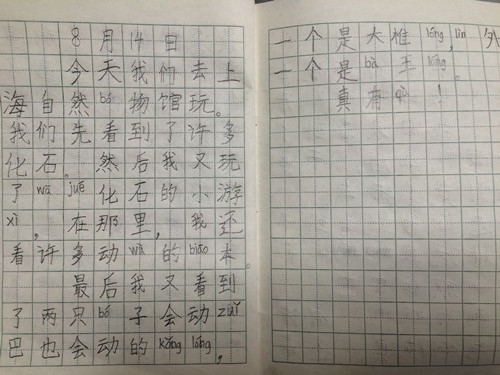 8月14日
今天我们去上
海自然bó物馆玩。
我们先看到了许多
化石。然后我又玩
了wā jué化石的小游
xì，在那里，我还
看许多动wù的biāo本。
最后我又看到
了两只bó子会动zuǐ
巴也会动的kǒng lóng，
一个是大椎lóng，lìn外
一个是bà王lóng。
真有！